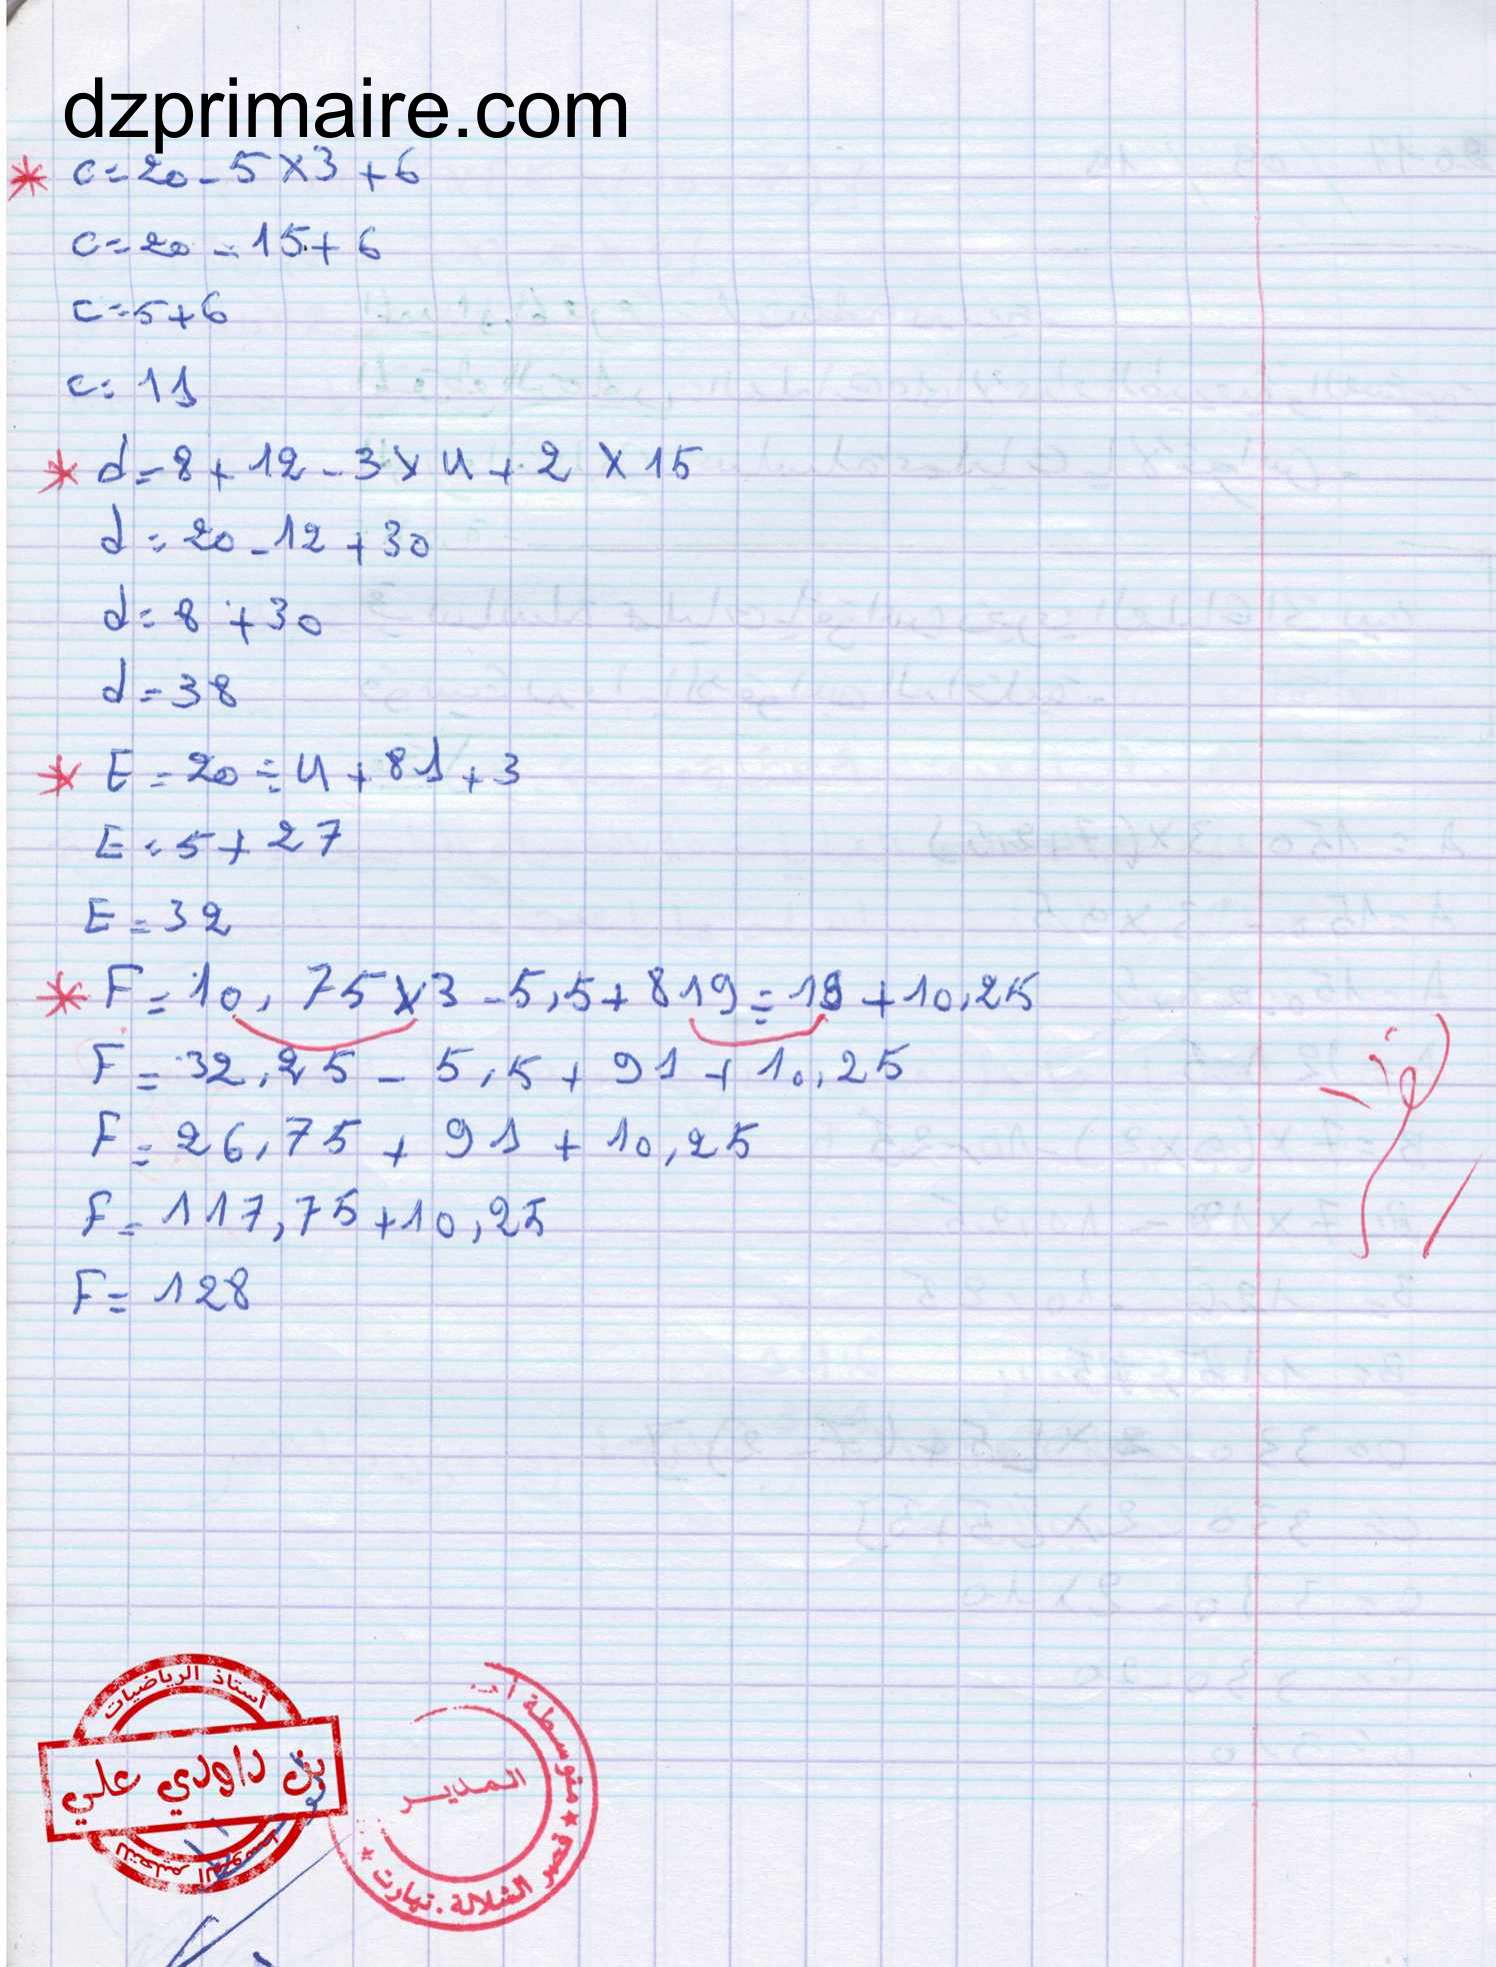 dzprimaire.com
* c=20-5×3+6
c=20-15+6
c=5+6
c=11
* d=8+12-3×4+2×15
d=20-12+30
d=8+30
d=38
* E=20÷4+81+3
E=5+27
E=32
* F=10,75×3-5,5+819÷19+10,25
F=32,25-5,5+91+10,25
F=26,75+91+10,25
F=117,75+10,25
F=128
أستاذ الرياضيات
بن داودي علي
للتعليم المتوسط
متوسطة
المدير
* قصر الشلالة.تيارت *